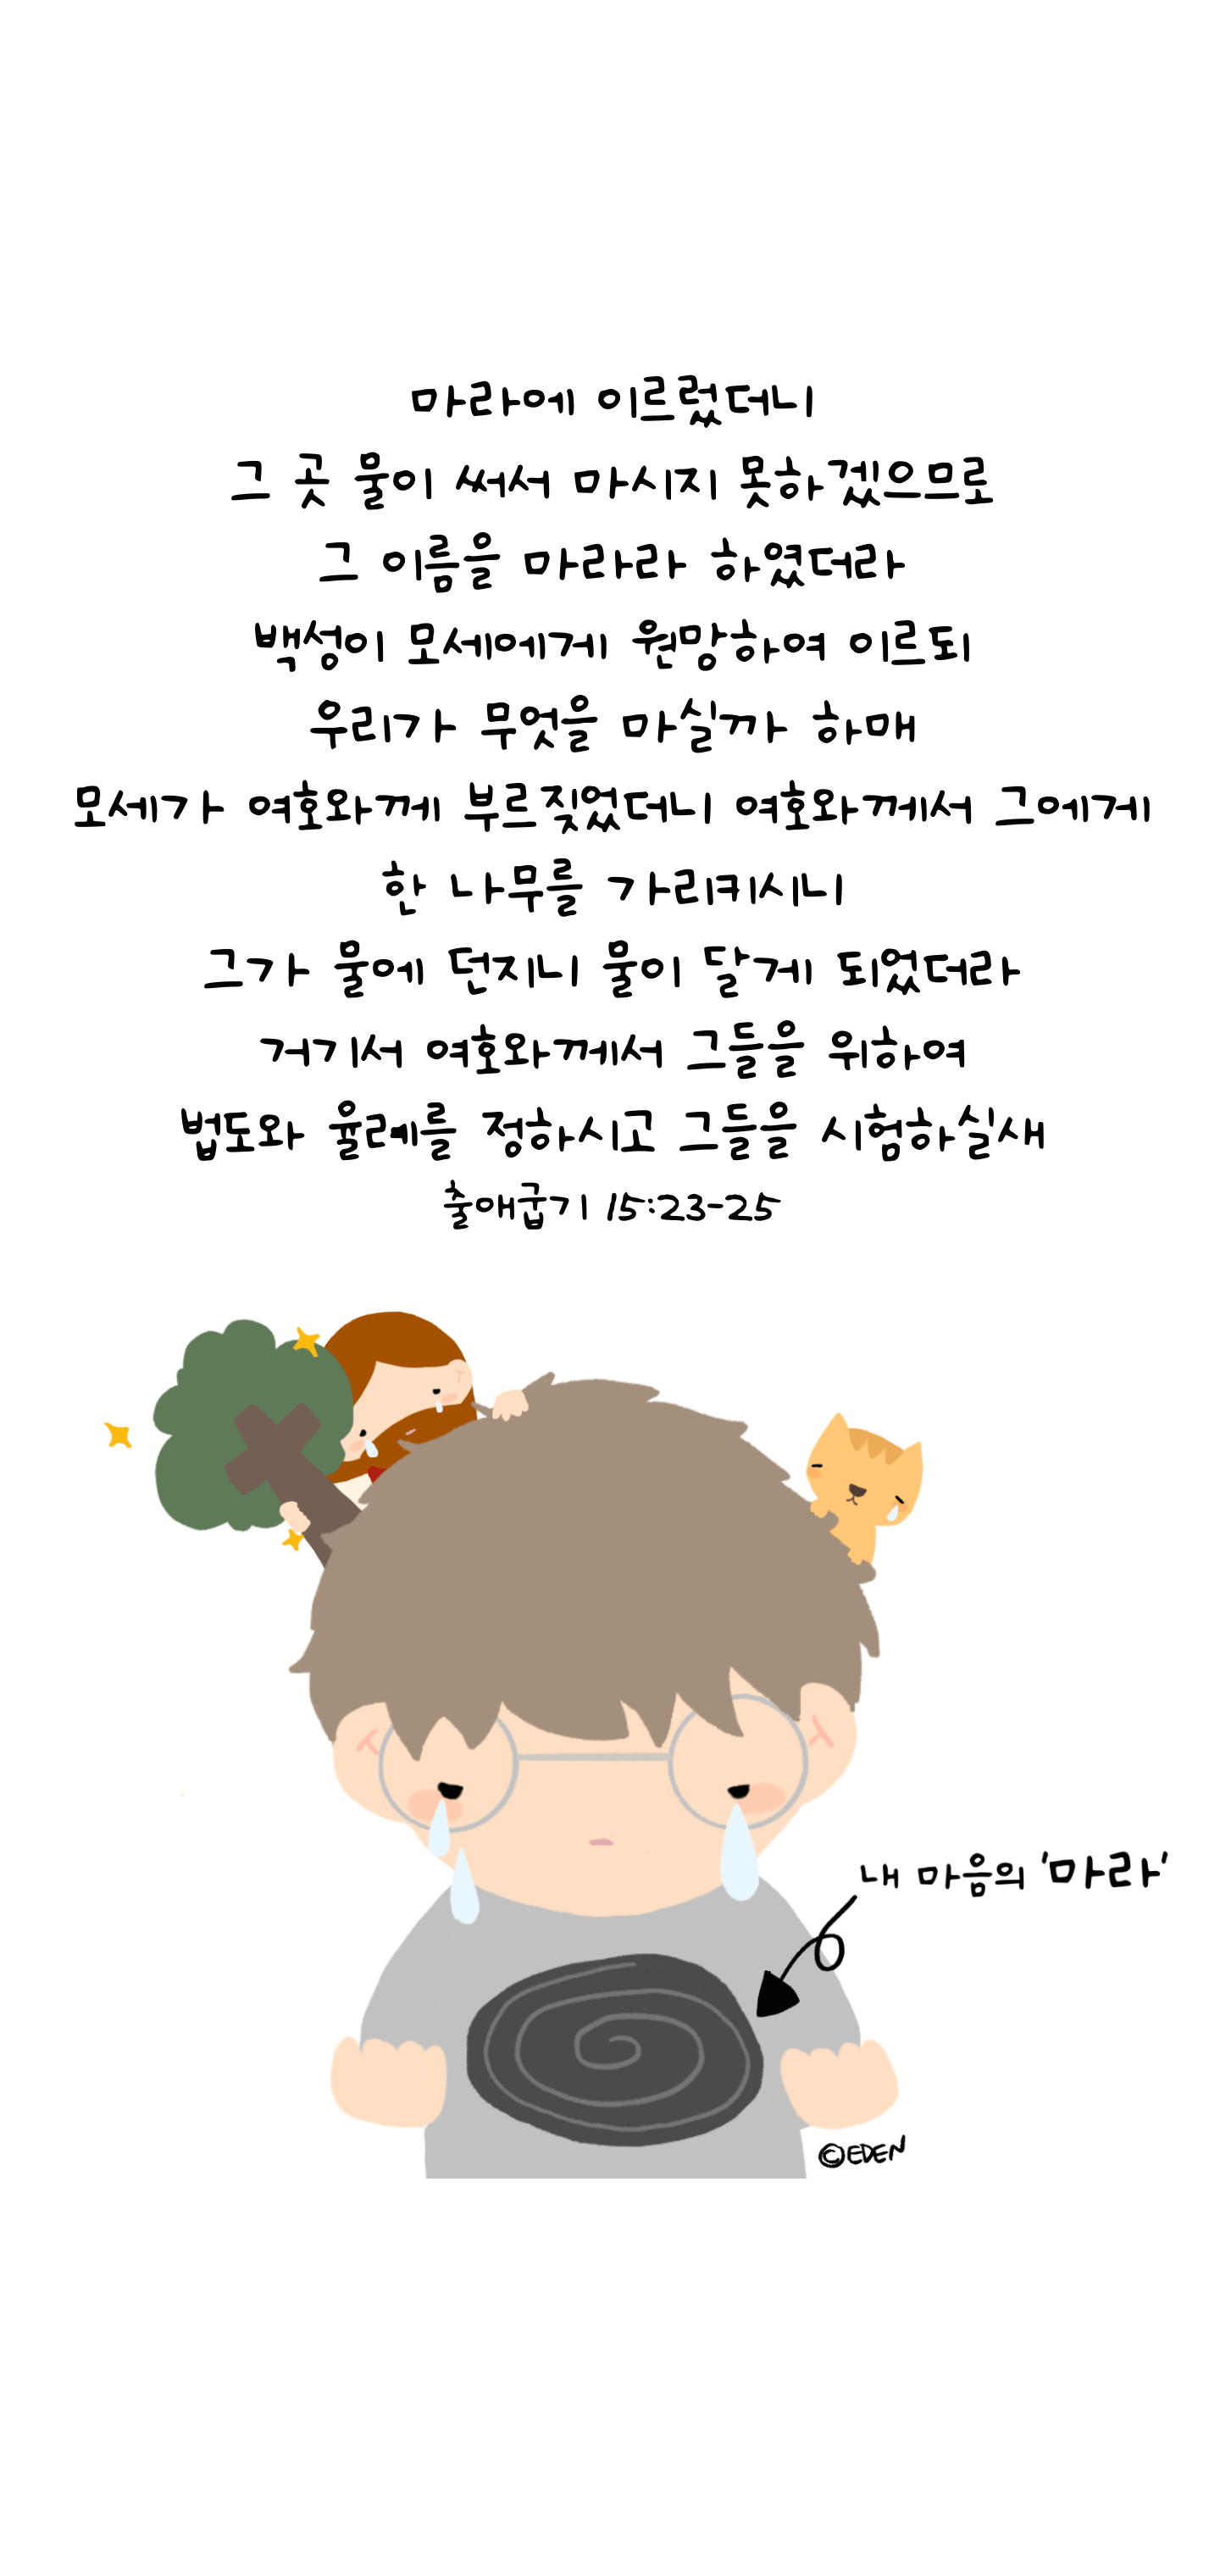 마라에 이르렀더니
그 곳 물이 써서 마시지 못하겠으므로
그 이름을 마라라 하였더라
백성이 모세에게 원망하여 이르되
우리가 무엇을 마실까 하매
모세가 여호와께 부르짖었더니 여호와께서 그에게
한 나무를 가리키시니
그가 물에 던지니 물이 달게 되었더라
거기서 여호와께서 그들을 위하여
법도와 율례를 정하시고 그들을 시험하실새
출애굽기 15:23-25
내 마음의 '마라'
©EDEN